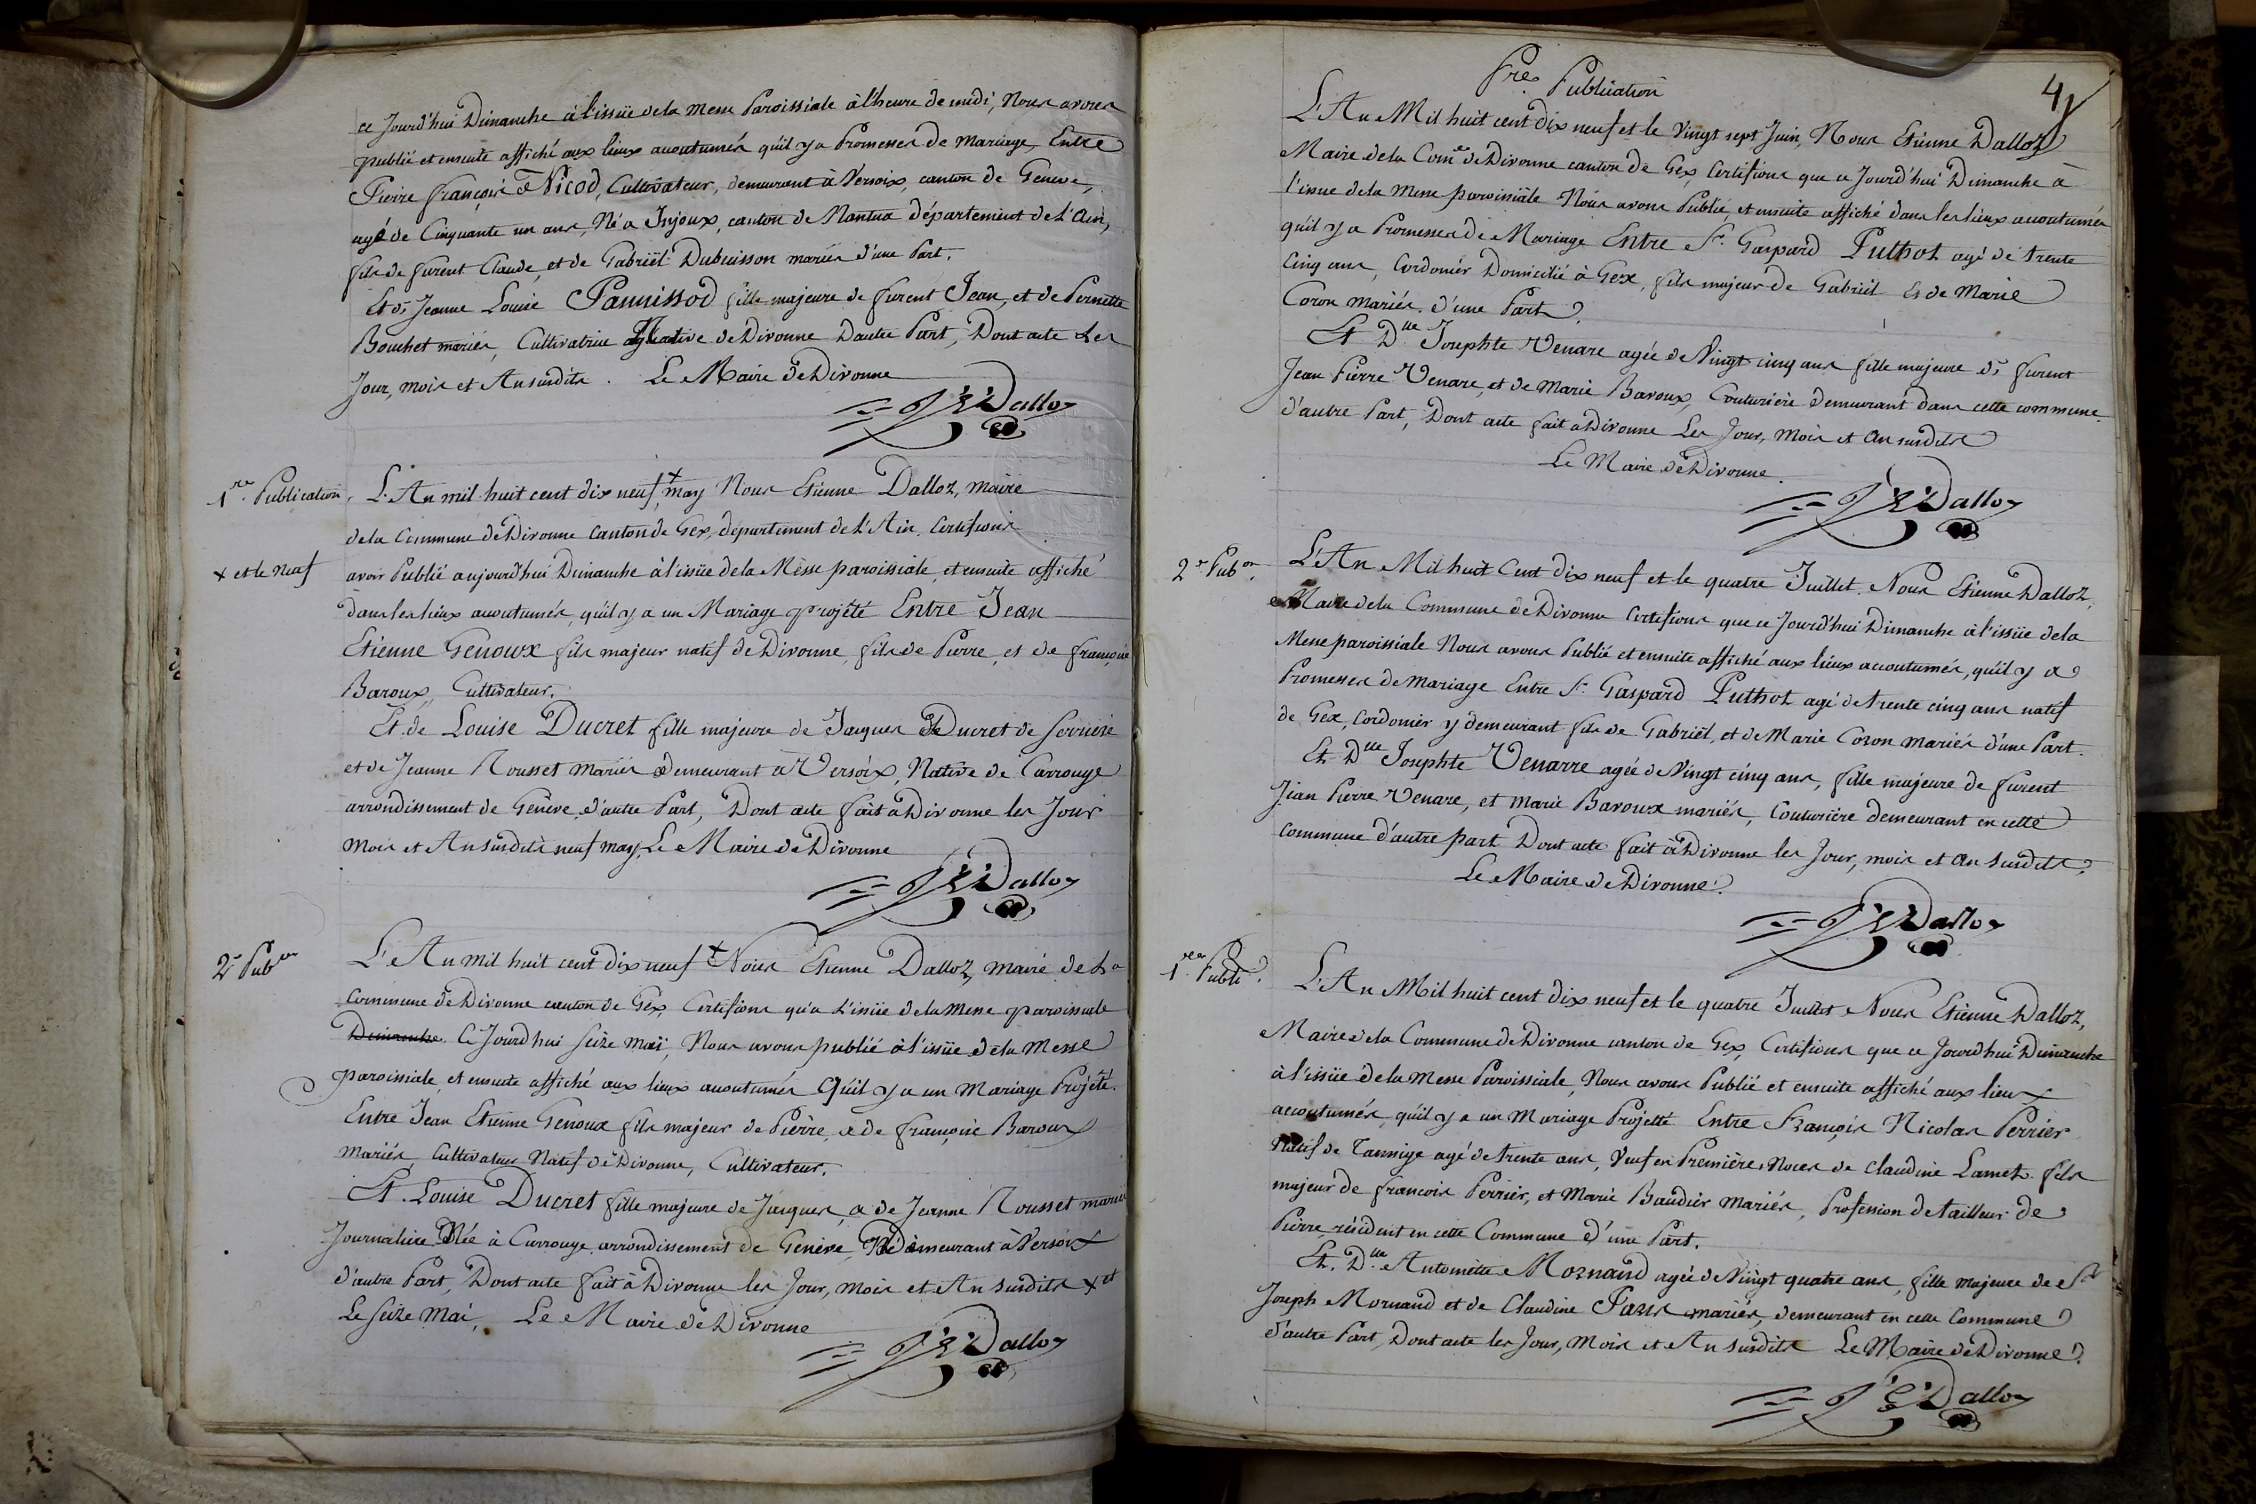 ce Jourd'hui Dimanche à l'issüe de la Messe Paroissiale à l'heure de midi, Nous avons
publié et ensuite affiché aux lieux accoutumés qu'il y a Promesses de Mariage Entre
Pierre François Nicod, Cultivateur, demeurant à Versoix, canton de Geneve,
agé de Cinquante un ans, Né a Injoux, canton de Nantua département de l'Ain,
fils de furent Claude, et de Gabriël Dubuisson mariés d'une Part.
Et de Jeanne Louise Pannissod fille majeure de furent Jean, et de Pernette
Bouchet mariés, Cultivatrice Native de Divonne D'autre Part, Dont acte Les
Jour, mois et An susdits. Le Maire de Divonne
Dalloz
1re Publication, L'An mil huit cent dix neuf + may Nous Etienne Dalloz, maire
de la Commune de Divonne Canton de Gex, département de l'Ain, Certifions
+ et le neuf
avoir Publié aujourd'hui Dimanche à l'issüe de la Messe paroissiale, et ensuite affiché
dans les lieux accoutumés, qu'il y a un Mariage projété Entre Jean
Etienne Genoux fils majeur natif de Divonne, fils de Pierre, et de Françoise
Baroux, Cultivateur.
Et de Louise Ducret fille majeure de Jacques Ducret de
et de Jeanne Rousset Mariés demeurant à Versoix, Native de Carrouge
arrondissement de Genève, d'autre Part, Dont acte fait à Divonne les Jour
Mois et An susdits neuf may, Le Maire de Divonne
Dalloz
2e Pubon
L'An mil huit cent dix neuf + Nous Etienne Dalloz, maire de La
Commune de Divonne canton de Gex Certifions qu'a L'issüe de la Messe paroissiale
Dimanche. Ce Jourd'hui Seize Maï, Nous avons publié à l'issüe de la Messe
paroissiale, et ensuite affiché aux lieux accoutumés Qu'il y a un Mariage Projété.
Entre Jean Etienne Genoux fils majeur de Pierre, & de Françoise Baroux
Mariés, Cultivateur Natif de Divonne, Cultivateur.
Et Louise Ducret fille majeure de Jacques, & de Jeanne Rousset mariés
Journaliere Née à Carrouge, arrondissement de Genève, demeurant à Versoix
d'autre Part, Dont acte fait à Divonne les Jour, mois et An susdits + et
Le Seize Mai, Le Maire de Divonne
Dalloz
4
Pre Publication
L'An Mil huit cent Dix neuf et le Vingt sept Juin, Nous Etienne Dalloz
Maire de la Come de Divonne canton de Gex, Certifions que ce Jourd'hui Dimanche à
l'issue de la Messe paroissiale Nous avons Publié, et ensuite affiché dans les lieux accoutumés
qu'il y a Promesses de Mariage Entre Sr Gaspard Puthot agé de trente
Cinq ans, Cordonier Domicilié à Gex, fils majeur de Gabriël Et de Marie
Coron Mariés d'une Part.
Et Dlle Josephte Venare agée de Vingt cinq ans fille majeure de furent
Jean Pierre Venare, et de Marie Baroux, Couturière demeurant dans cette commune
d'autre Part, Dont acte fait à Divonne Les Jour, Mois et An susdits
Le Maire de Divonne.
Dalloz
2e Pubon.
L'An Mil huit Cent Dix neuf et le quatre Juillet Nous Etienne Dalloz,
Maire de la Commune de Divonne Certifions que ce Jourd'hui Dimanche à l'issüe de la
Messe paroissiale Nous avons Publié et ensuite affiché aux lieux accoutumés, qu'il y a
Promesses de Mariage Entre Sr Gaspard Puthot agé de trente cinq ans natif
de Gex, Cordonier y demeurant fils de Gabriël, et de Marie Coron Mariés d'une Part.
Et Dlle Josephte Venarre agée de Vingt cinq ans, fille majeure de furent
Jean Pierre Venare, et Marie Baroux mariés, Couturière demeurant en cette
Commune d'autre part Dont acte fait à Divonne les Jour, mois et An susdits.
Le Maire de Divonne.
Dalloz
1re Publi.
L'An Mil huit cent dix neuf et le quatre Juillet Nous Etienne Dalloz,
Maire de la Commune de Divonne canton de Gex, Certifions que ce Jourd'hui Dimanche
à l'issüe de la Messe Paroissiale, Nous avons Publié et ensuite affiché aux lieux
accoutumés, qu'il y a un Mariage Projetté Entre François Nicolas Perrier
Natif de Tanninge agé de trente ans, Veuf en Première Noces de Claudine Lamet fils
majeur de François Perrier, et Marie Baudier Mariés, Profession de tailleur de
Pierre, résident en cette Commune d'une Part.
Et Dlle Antoinette Mornand agée de Vingt quatre ans, fille Majeure de Sr
Joseph Mornand et de Claudine Paris mariés, demeurant en cette Commune
d'autre Part, Dont acte les Jour, Mois et An susdits Le Maire de Divonne.
Dalloz